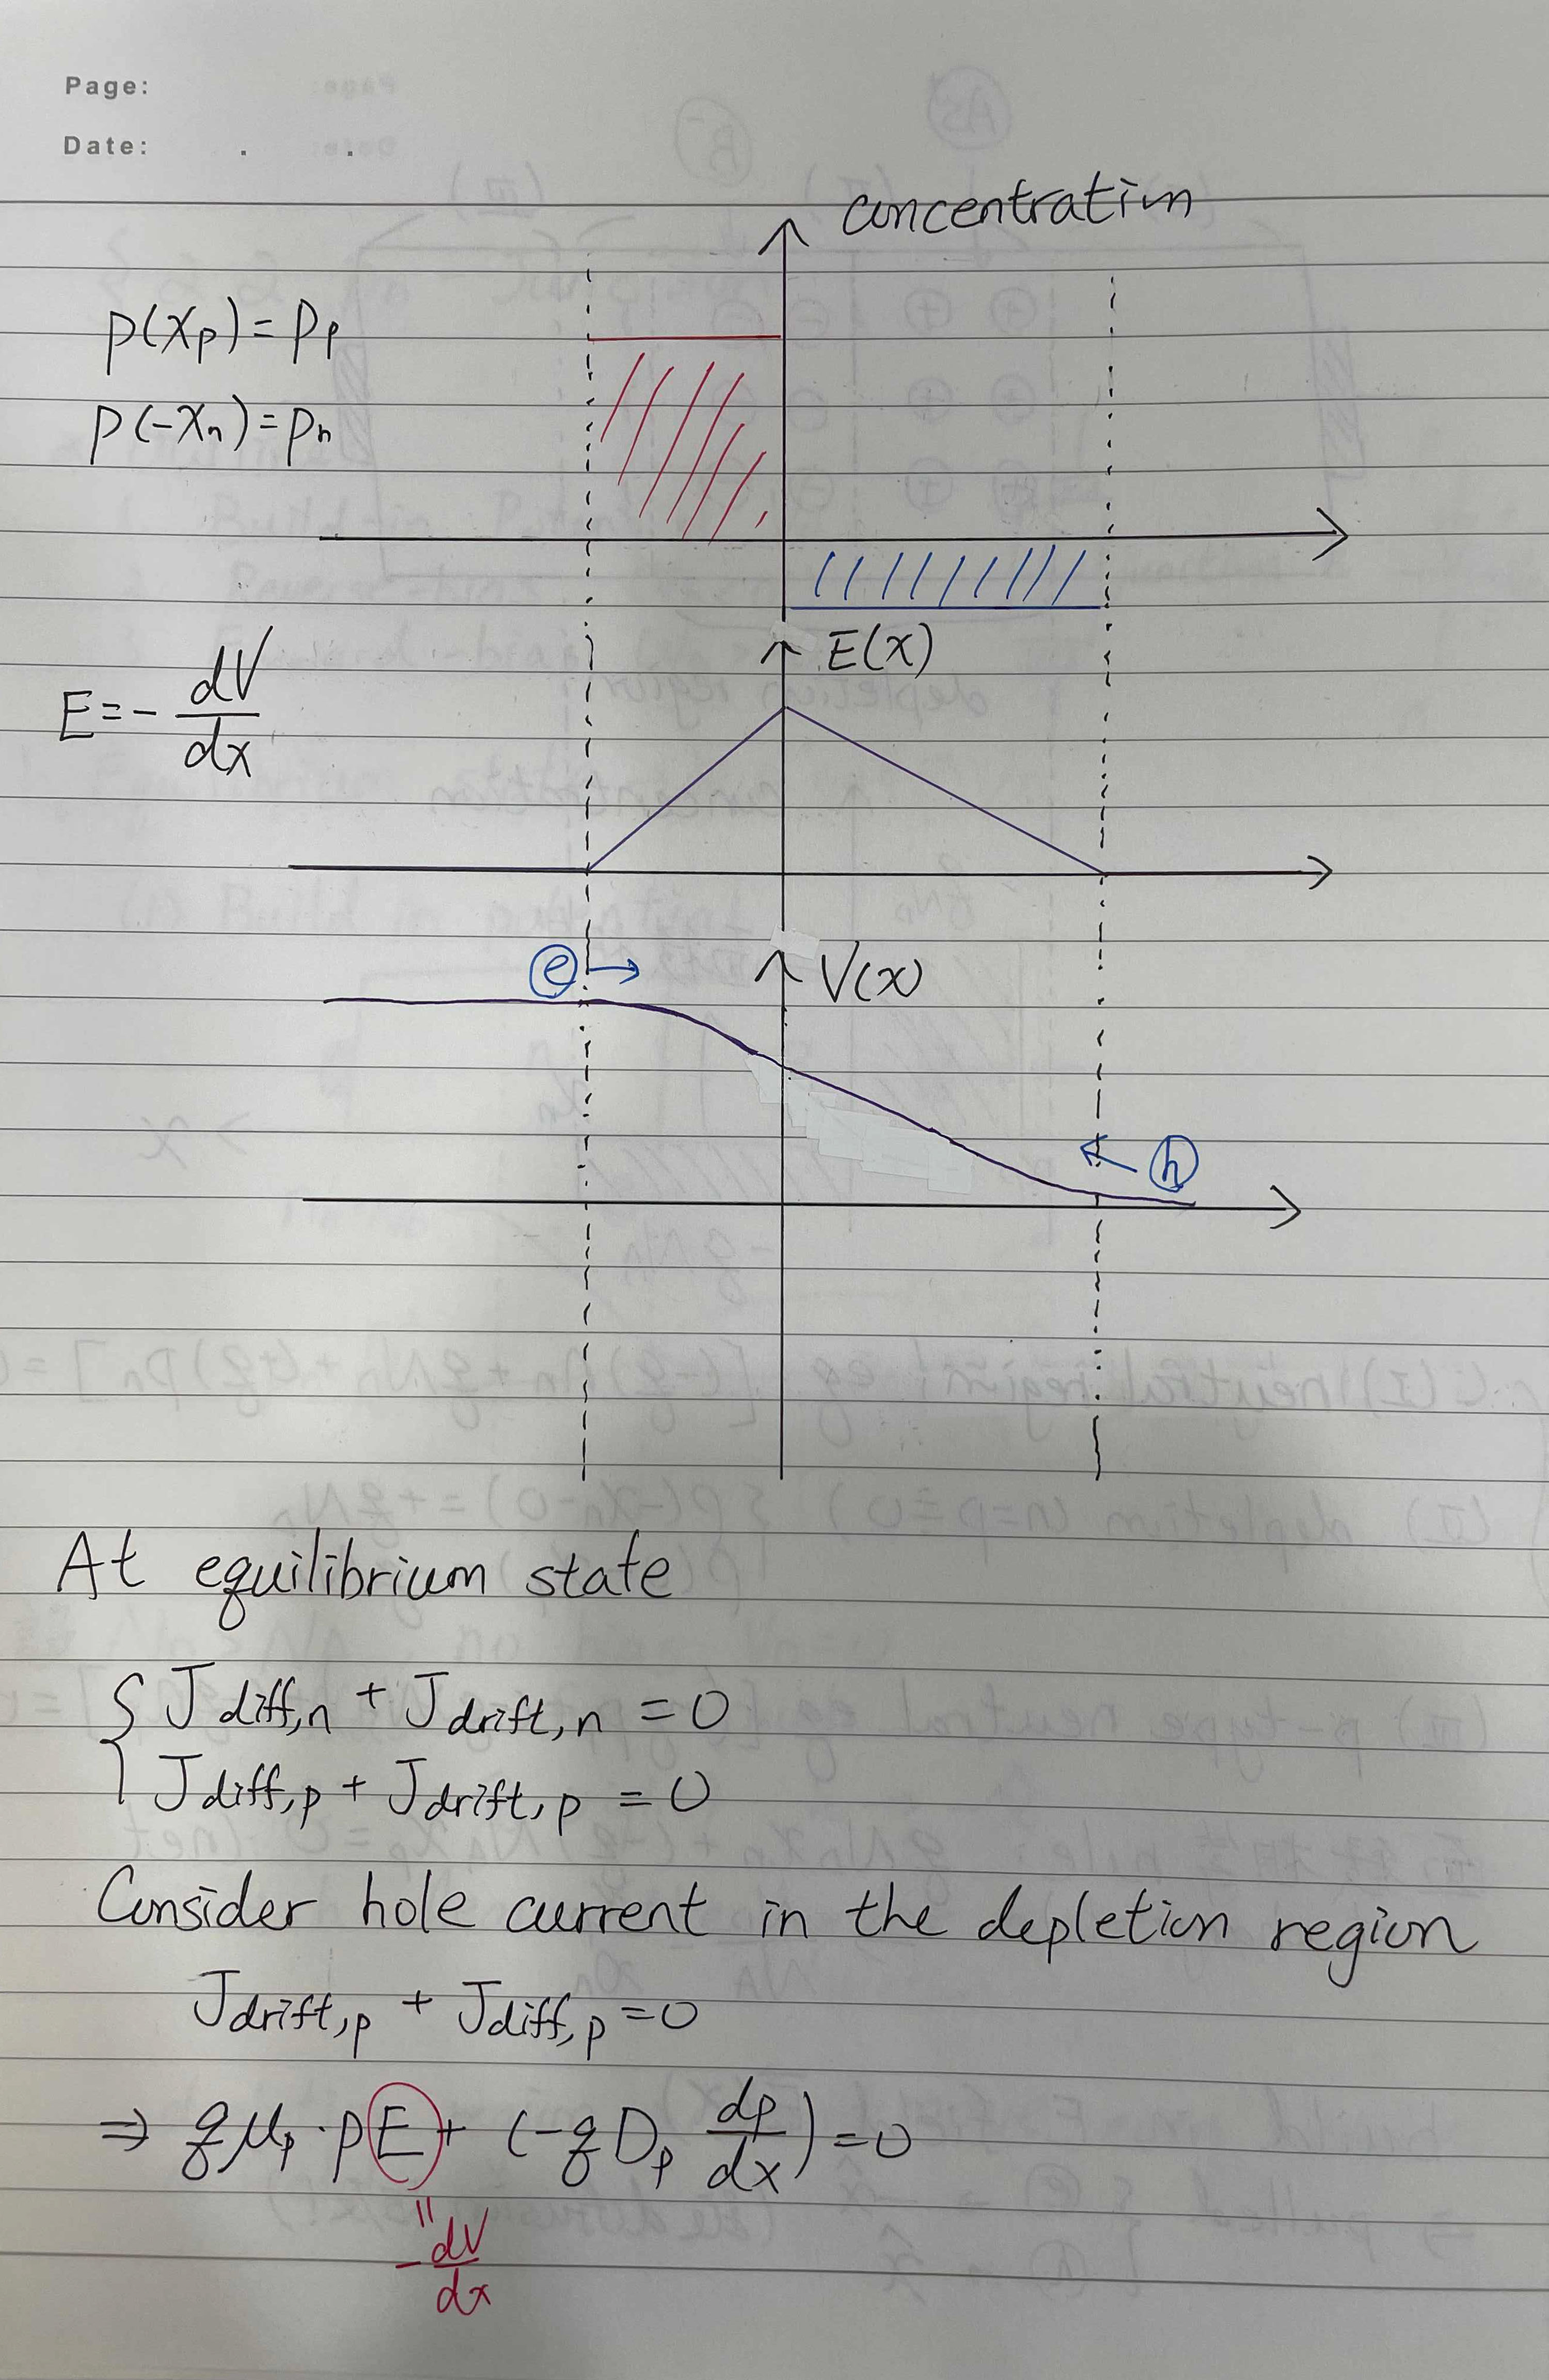 Page:
Date: . .
concentration
p(xp) = pp
p(-xn) = pn
E(x)
E = - dV/dx
e →
V(x)
← h
At equilibrium state
{ Jdiff,n + Jdrift,n = 0
Jdiff,p + Jdrift,p = 0
Consider hole current in the depletion region
Jdrift,p + Jdiff,p = 0
⇒ qμp · pE + (-qDp dp/dx) = 0
= - dV/dx